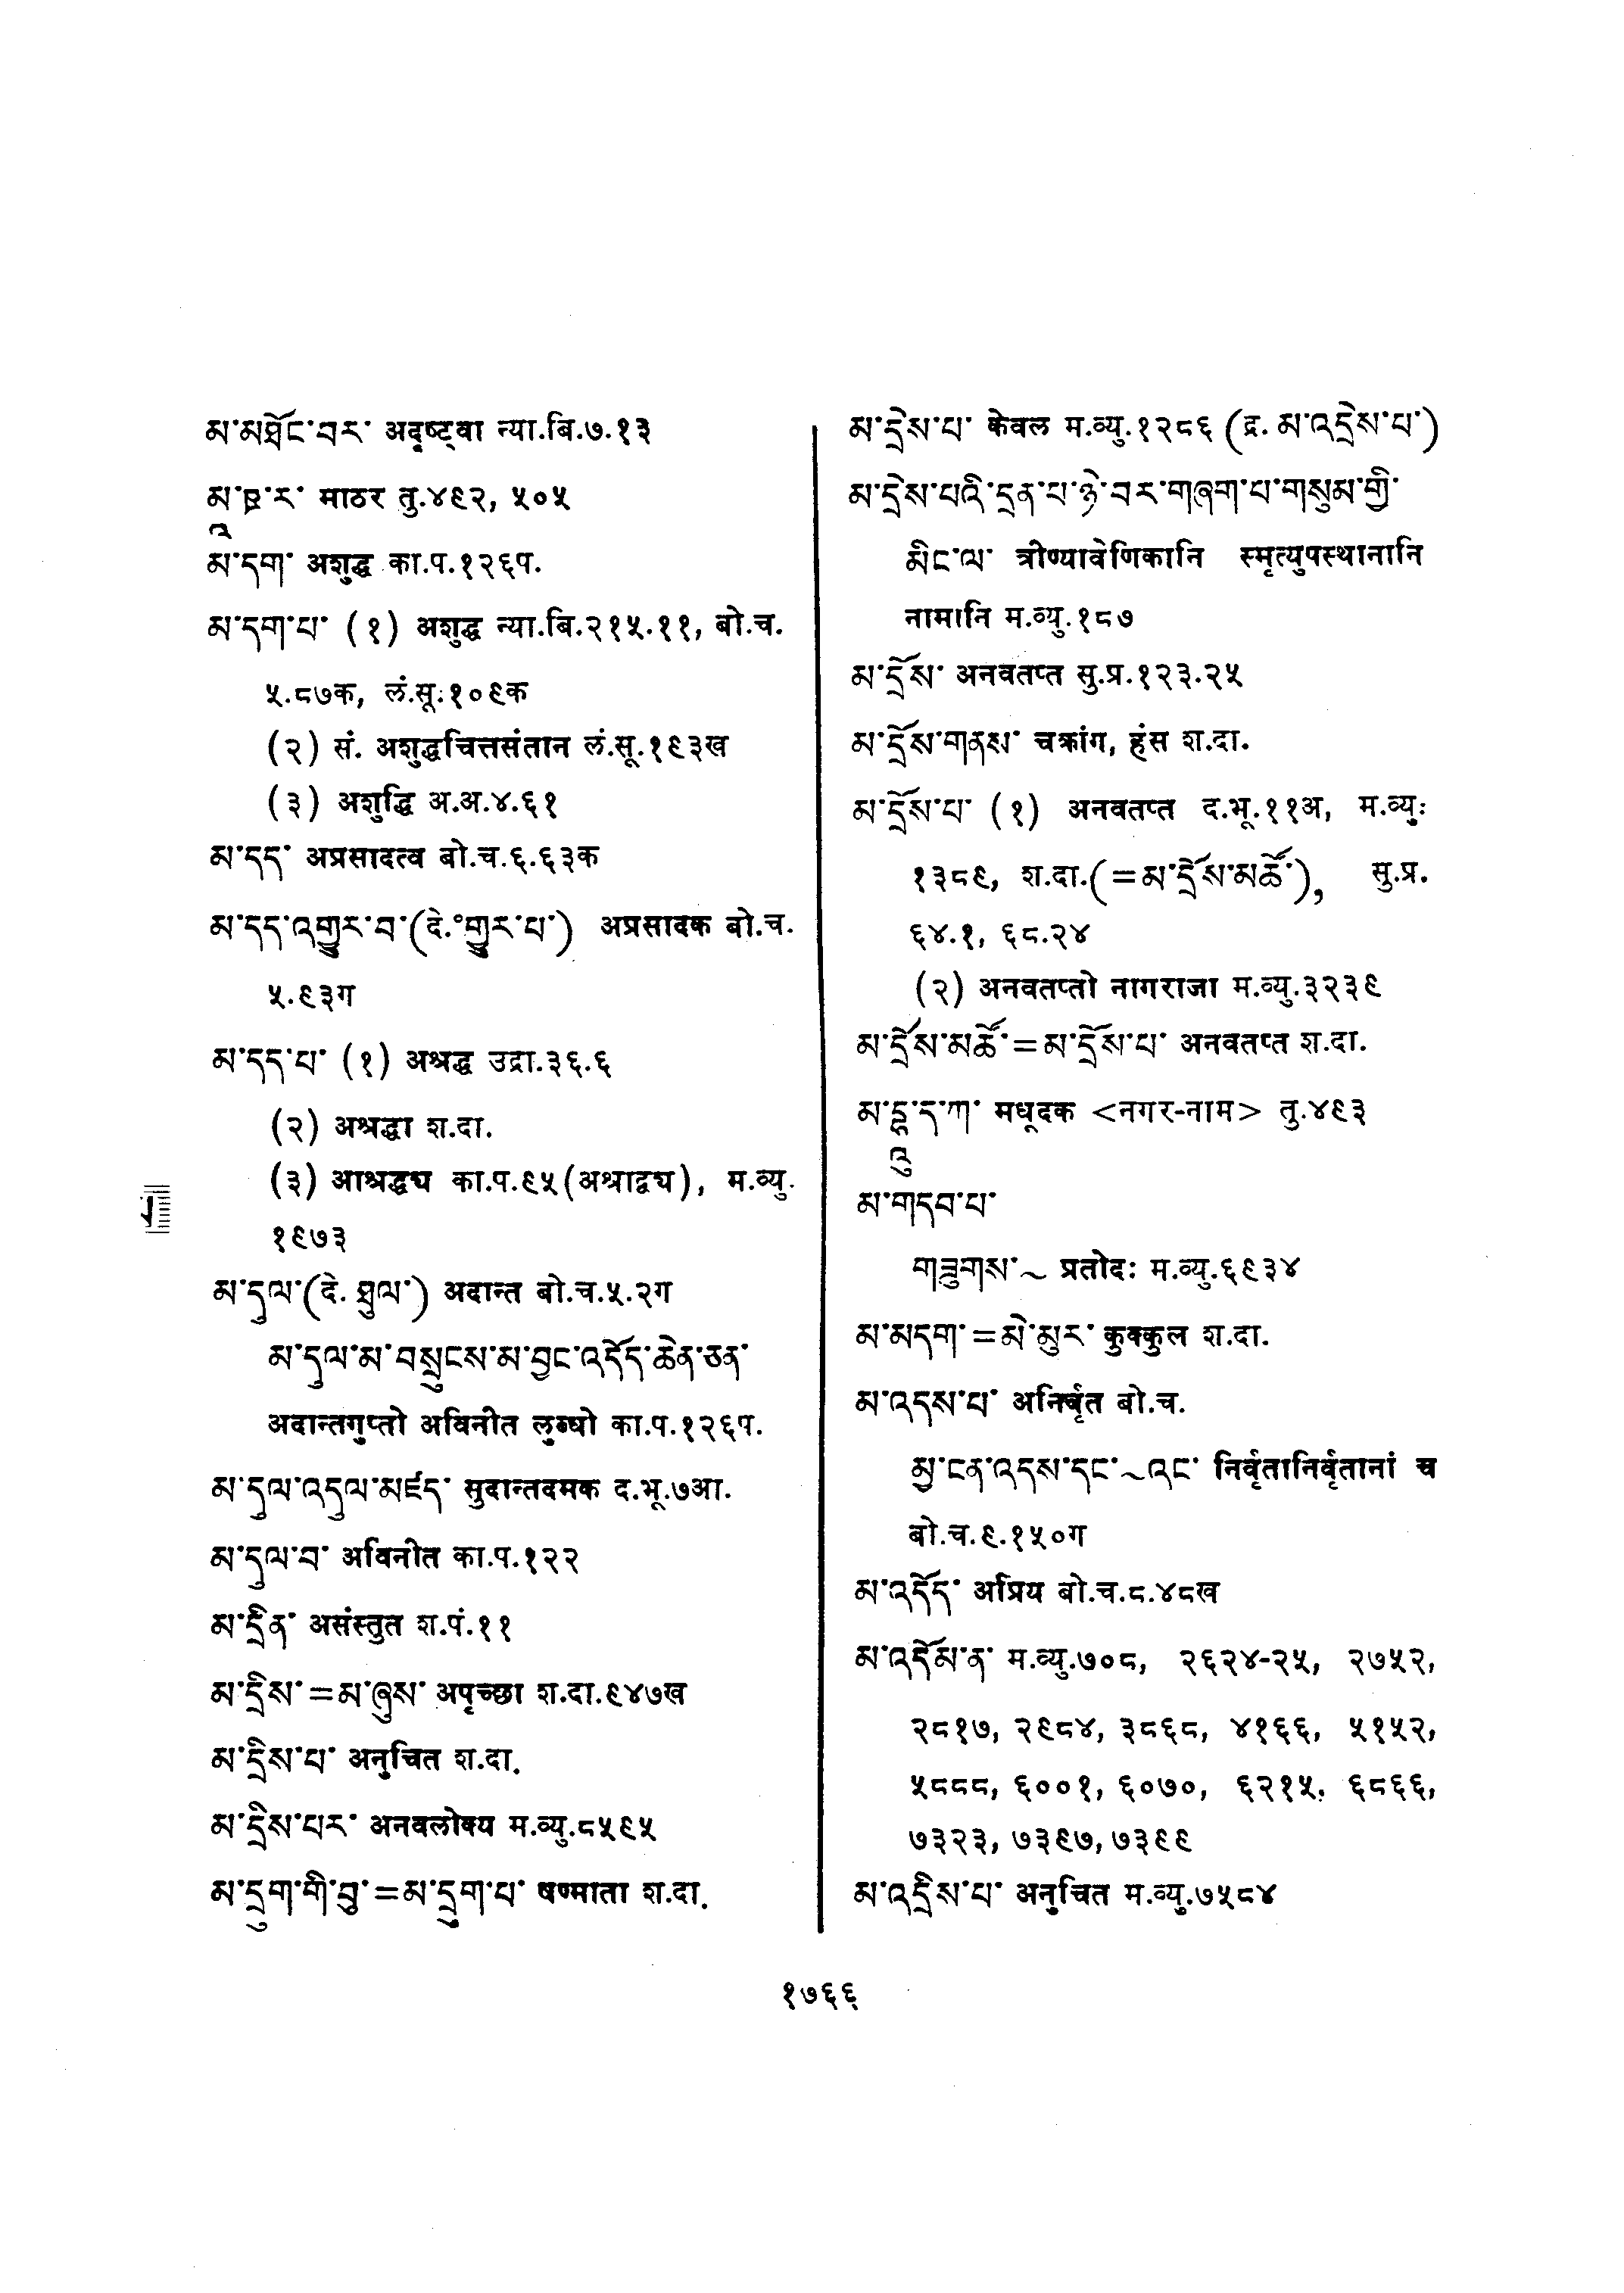 མ་མཐོང་བར་ अदृष्ट्वा न्या.बि.७.१३
མཱ་ཋ་ར་ माठर तु.४९२, ५०५
མ་དག་ अशुद्ध का.प.१२६प.
མ་དག་པ་ (१) अशुद्ध न्या.बि.२१५.११, बो.च.
५.८७क, लं.सू.१०९क
(२) सं. अशुद्धचित्तसंतान लं.सू.१९३ख
(३) अशुद्धि अ.अ.४.६१
མ་དད་ अप्रसादत्व बो.च.६.६३क
མ་དད་འགྱུར་བ་(दे.॰གྱུར་པ་) अप्रसादक बो.च.
५.९३ग
མ་དད་པ་ (१) अश्रद्ध उद्रा.३६.६
(२) अश्रद्धा श.दा.
(३) आश्रद्धच का.प.९५(अश्राद्वच), म.व्यु.
१९७३
མ་དུལ་(दे. ཐུལ་) अदान्त बो.च.५.२ग
མ་དུལ་མ་བསྲུངས་མ་བྱང་འདོད་ཆེན་ཅན་
अदान्तगुप्तो अविनीत लुब्धो का.प.१२६प.
མ་དུལ་འདུལ་མཛད་ सुदान्तदमक द.भू.७आ.
མ་དུལ་བ་ अविनीत का.प.१२२
མ་དྲིན་ असंस्तुत श.पं.११
མ་དྲིས་=མ་ཞུས་ अपृच्छा श.दा.९४७ख
མ་དྲིས་པ་ अनुचित श.दा.
མ་དྲིས་པར་ अनवलोक्य म.व्यु.८५९५
མ་དྲུག་གི་བུ་=མ་དྲུག་པ་ षण्माता श.दा.
མ་དྲེས་པ་ केवल म.व्यु.१२८६ (द्र. མ་འདྲེས་པ་)
མ་དྲེས་པའི་དྲན་པ་ཉེ་བར་གཞག་པ་གསུམ་གྱི་
མིང་ལ་ त्रीण्यावेणिकानि स्मृत्युपस्थानानि
नामानि म.व्यु.१८७
མ་དྲོས་ अनवतप्त सु.प्र.१२३.२५
མ་དྲོས་གནས་ चक्रांग, हंस श.दा.
མ་དྲོས་པ་ (१) अनवतप्त द.भू.११अ, म.व्यु:
१३८९, श.दा.(=མ་དྲོས་མཚོ་), सु.प्र.
६४.१, ६८.२४
(२) अनवतप्तो नागराजा म.व्यु.३२३९
མ་དྲོས་མཚོ་=མ་དྲོས་པ་ अनवतप्त श.दा.
མ་དྷཱུ་ད་ཀ་ मधूदक <नगर-नाम> तु.४९३
མ་གདབ་པ་
གཟུགས་~ प्रतोदः म.व्यु.६९३४
མ་མདག་=མེ་མུར་ कुक्कुल श.दा.
མ་འདས་པ་ अनिर्वृत बो.च.
མྱ་ངན་འདས་དང་~འང་ निर्वृतानिर्वृतानां च
बो.च.९.१५०ग
མ་འདོད་ अप्रिय बो.च.८.४८ख
མ་འདོམ་ན་ म.व्यु.७०८, २६२४-२५, २७५२,
२८१७, २९८४, ३८६८, ४१६६, ५१५२,
५८८८, ६००१, ६०७०, ६२१५, ६८६६,
७३२३, ७३९७, ७३९९
མ་འདྲིས་པ་ अनुचित म.व्यु.७५८४
१७६६